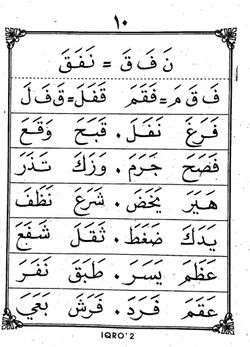 ١٠
نَ فَ قَ = نَفَقَ
فَ قَ مَ = فَقَمَ قَفَلَ = قَ فَ لَ
فَرَغَ نَفَلَ . قَبَحَ وَقَعَ
فَصَحَ جَرَمَ . وَزَكَ تَذَرَ
هَبَرَ يَخَضَ . شَرَعَ نَظَفَ
يَدَكَ ضَغَطَ . ثَقَلَ شَفَعَ
عَظَمَ يَسَرَ . طَبَقَ نَفَرَ
عَقَمَ فَرَدَ . فَرَشَ بَغَيَ
IQRO'2